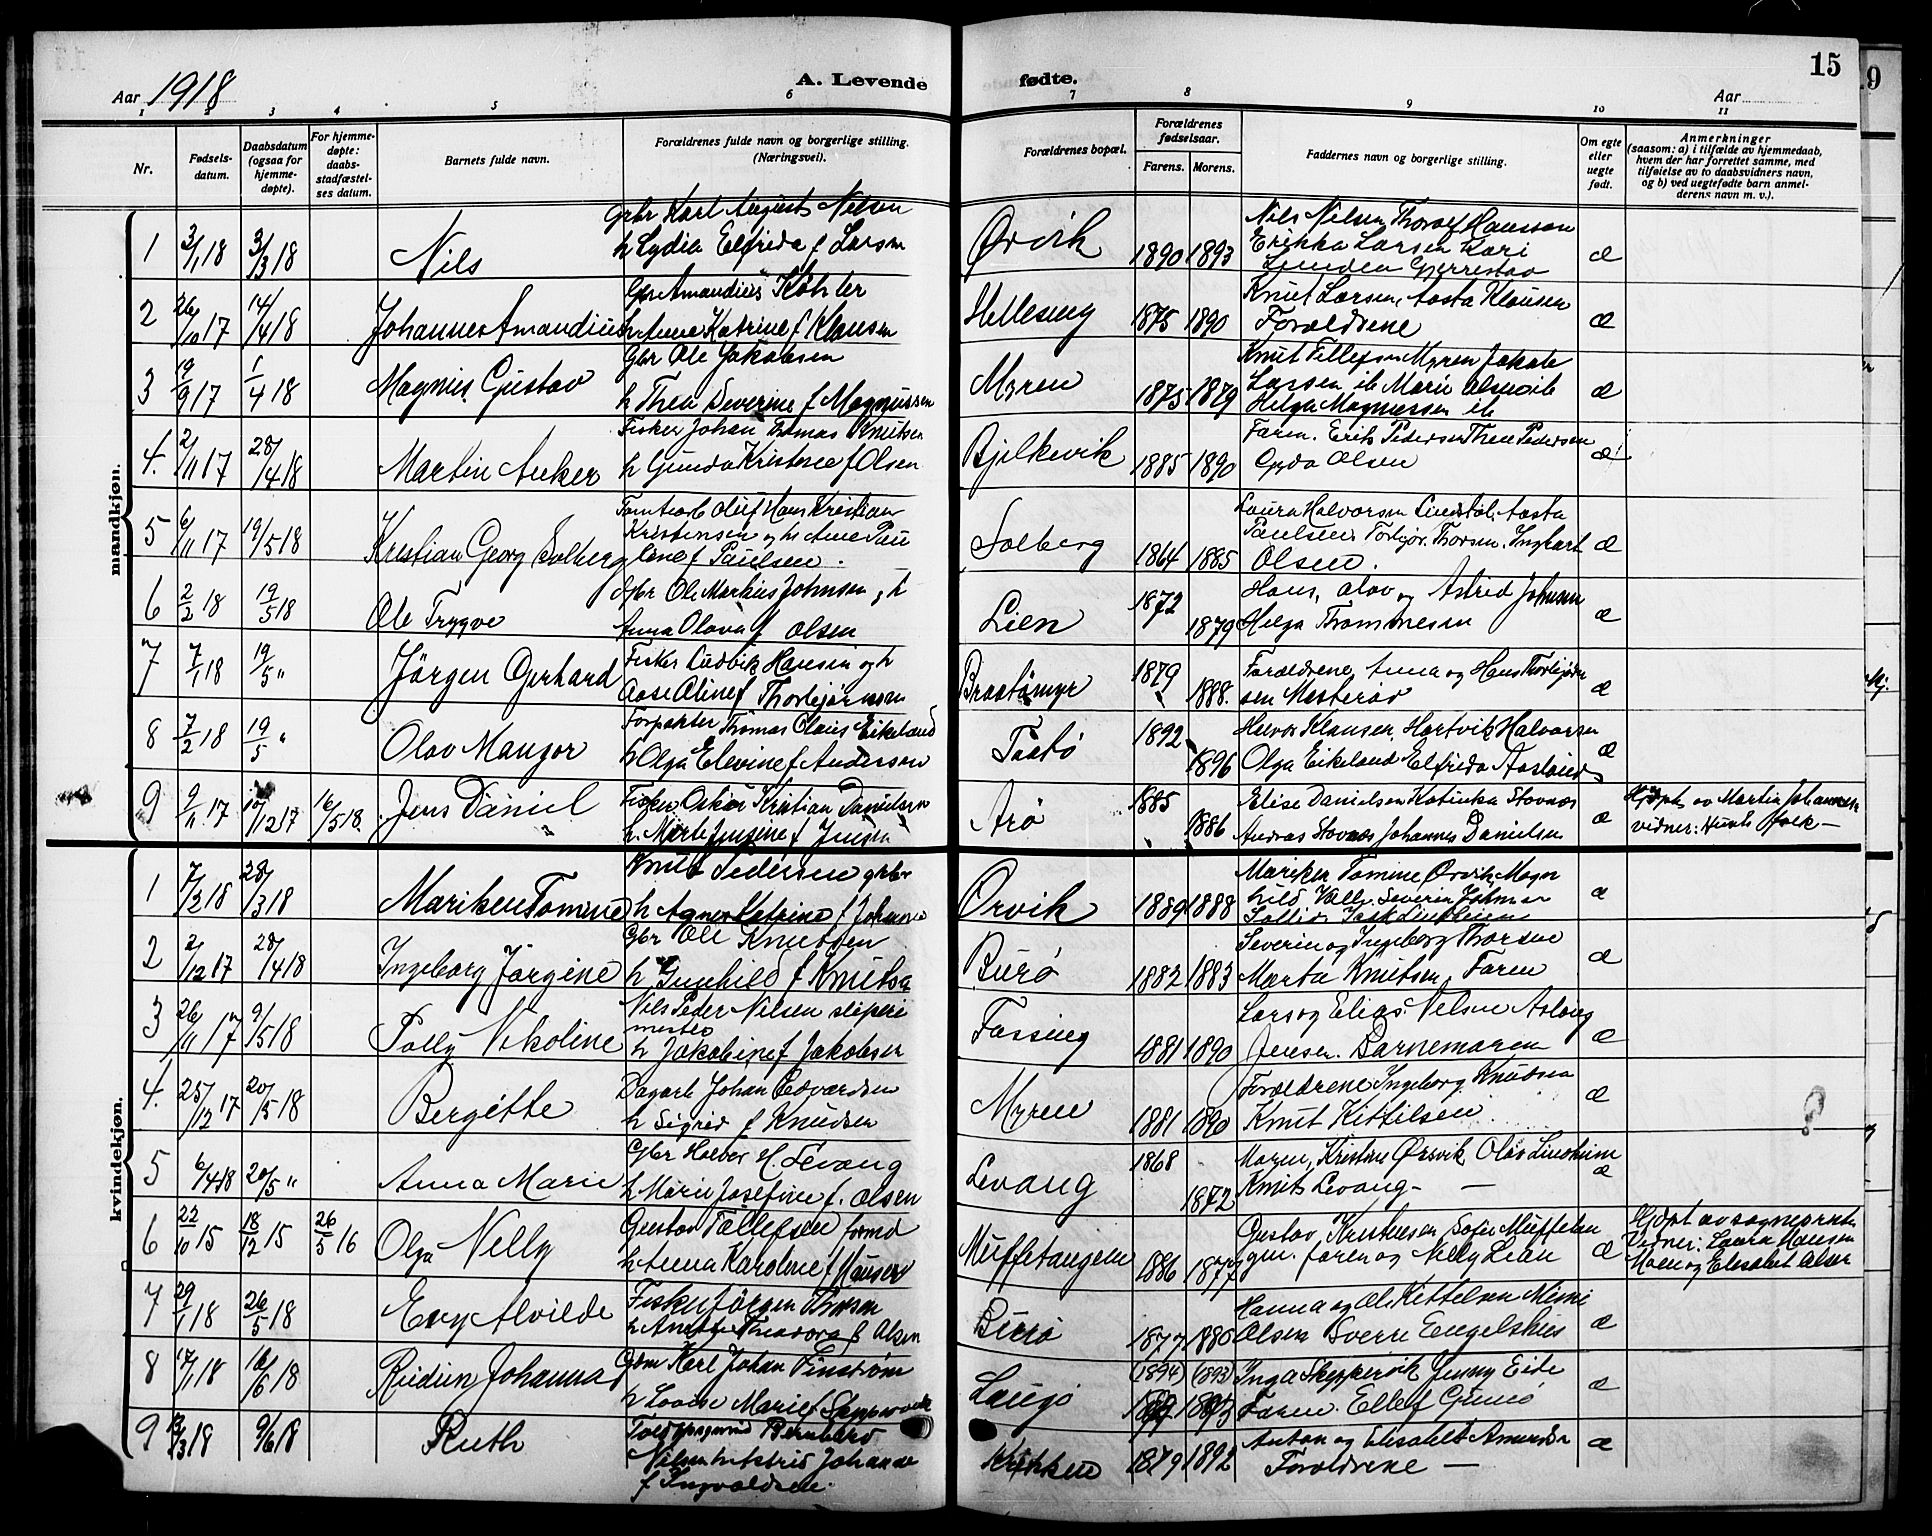 Aar 1918
A. Levende
fødte.
15
Aar
1 2 3 4 5 6 7 8 9 10 11
Nr.
Fødsels-
datum.
Daabsdatum
(ogsaa for
hjemme-
døpte).
For hjemme-
døpte:
daabs-
stadfæstel-
ses datum.
Barnets fulde navn.
Forældrenes fulde navn og borgerlige stilling.
(Næringsvei).
Forældrenes bopæl.
Forældrenes
fødselsaar.
Farens. Morens.
Faddernes navn og borgerlige stilling.
Om egte
eller
uegte
født.
Anmerkninger
(saasom: a) i tilfælde av hjemmedaab,
hvem der har forrettet samme, med
tilføielse av to daabsvidners navn,
og b) ved uegtefødte barn anmel-
derens navn m. v.).
mandkjøn.
1 3/1 18 3/3 18 Nils
Gbr Karl August Nilsen
h Lydia Elfrida f Larsen
Ørvik 1890 1893
Nils Nilsen Thoralf Hansson
Erikka Larsen Kari
æ
2 26/10 17 14/4 18 Johannes Amandius
Gbr Amandius Köhler
h Anna Katrine f Klausen
Helleseng 1875 1890
Knut Larsen, Aasta Klausen
Forældrene
æ
3 19/9 17 1/4 18 Magnus Gustav
Gbr Ole Jakobsen
h Thea Severine f Magnussen
Myren 1875 1879
Knut Tellefsen Myren Jakob
Larsen ib Marie Olsen ib
Helga Magnussen ib
æ
4. 2/11 17 28/4 18 Martin Anker
Fisker Johan Thomas Knutsen
h Gunda Kristine f Olsen
Bjelkevik 1885 1890
Faren. Erik Pedersen Thea Pedersen
Gyda Olsen
æ
5 6/11 17 19/5 18 Kristian Georg Solberg
Tomtearb Oluf Hans Kristian
Kristensen og h Ane Pau
line f Paulsen.
Solberg 1864 1885
Laura Halvorsen Lindstøl, Aasta
Paulsen, Torbjør. Thorsen. Ingvart
Olsen.
æ
6 2/2 18 19/5 18 Ole Trygve
Gbr Ole Markus Johnsen og h
Anna Olava f Olsen
Lien 1872 1879
Hans, Olav og Astrid Johnsen
Helga Thommesen
æ
7 7/1 18 19/5 " Jörgen Gerhard
Fisker Ludvik Hansen og h
Aase Oline f Thorbjørnsen
1879 1888.
Forældrene, Anna og Hans Thorbjørn
sen
æ
8 7/2 18 19/5 " Olav Mangor
Forpakter Thomas Claus Eikeland
h Olga Elevine f Anderson
Taatø 1892 1896
Halvor Klausen. Hartvik Halvorsen
Olga Eikeland Elfrida Aasland
æ
9 9/11 17 17/12 17 16/5 18. Jens Daniel
Fisker Oskar Kristian Danielsen
h. Marte Jensine f Jensen
Arø 1885 1886
Elise Danielsen Katinka Stovnæs
Andreas Stovnæs Johannes Danielsen
æ
Hjdpt av Martin Johannesen
vidner: Husets folk —
kvindekjøn.
1 7/2 18 28/3 18 Mariken Tomine
Knut Pedersen gbr
h Agnes Katrine f Johnsen
Ørvik 1889 1888
Mariken Tomine Ørvik, Magn
hild Vallø. Severin Johnsen
æ
2 2/12 17 28/4 18 Ingeborg Jörgine
Gbr Ole Knudsen
h Gunhild f Knutsen
Burø 1882 1883
Severin og Ingeborg Thorsen
Marta Knutsen, Faren
æ
3 26/11 17 9/5 18 Polly Nikoline
Nils Peder Nilsen sliperi
mester
h Jakobine f Jakobsen
Fossing 1881 1890
Lars og Elias Nilsen Aslaug
Jensen. Barnemoren
æ
4. 25/12 17 20/5 18 Bergitte
Dagarb Johan Edvardsen
h Sigrid f Knudsen
Myren 1881 1890
Forældrene, Ingeborg Knudsen
Knut Kittilsen
æ
5 6/4 18 20/5 " Anna Marie
Gbr Halvor H. Levang
h Marie Josefine f. Olsen
Levang 1868 1872
Maren, Kristine Ørsvik, Olav Lindheim
Knut Levang —
æ
6 22/10 15 18/12 15 26/5 16 Olga Nelly
Gustav Tallefsen formd
h Anna Karoline f Hansen
Muffetangen 1886 1877
Gustav, Kristensen, Sofie Muffetan
gen. faren og Nelly Lian
æ
Hjdpt av sogneprsten
Vidner: Laura Hansen
Moen og Elisabet Olsen
7 29/1 18 26/5 18 Evy Alvilde
Fisker Jörgen Thorsen
h Anette Theodora f Olsen
Burø 1877 1886
Hanna og Ole Kittelsen Mimi
Olsen Sverre Engelshus
æ
8 17/1 18 16/6 18 Reidun Johanna
Gdm Karl Johan Finstrøm
h Lovise Marie f Skeppervik
Langø (1894) (1893)
Inga Skeppervik Jenny Eide
Faren. Ellef Gumø
æ
9 13/3 18 9/6 18 Ruth
Bernhard
Nilsen h Astrid Johanne
f Ingvaldsen.
Krikken 1879 1892
Anton og Elisabet Amundsen
Forældrene —
æ